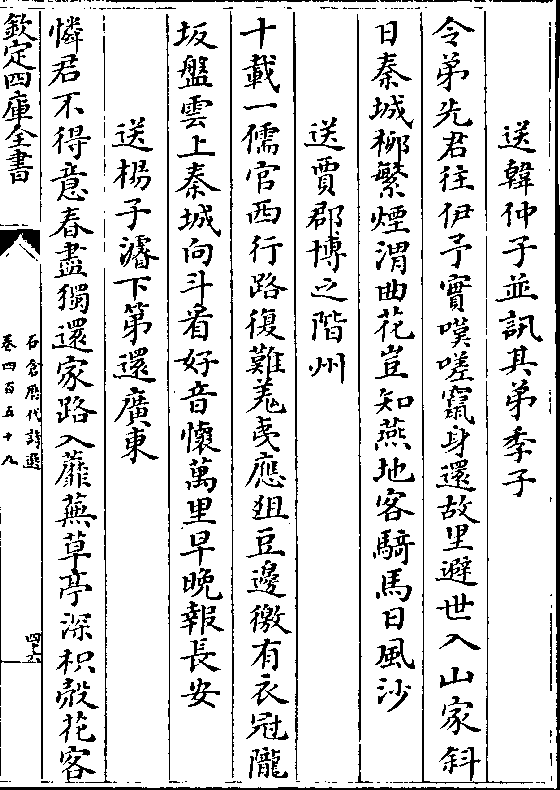 送韓仲子並訊其弟季子
令弟先君往伊予實嘆嗟竄身還故里避世入山家斜
日秦城栁繁煙渭曲花豈知燕地客騎馬日風沙
送賈郡博之階州
十載一儒官西行路復難羗㦮應俎豆邊徼有衣冠隴
坂盤雲上秦城向斗看好音懷萬里早晚報長安
送楊子濬下第還廣東
憐君不得意春盡獨還家路入蘼蕪草亭深枳殻花客
欽定四庫全書
石倉歴代詩選
卷四百五十九
四十六